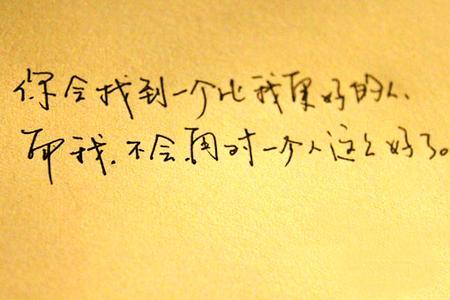 你会找到一个比我更好的人、
而我，不会再对一个人这么好了。